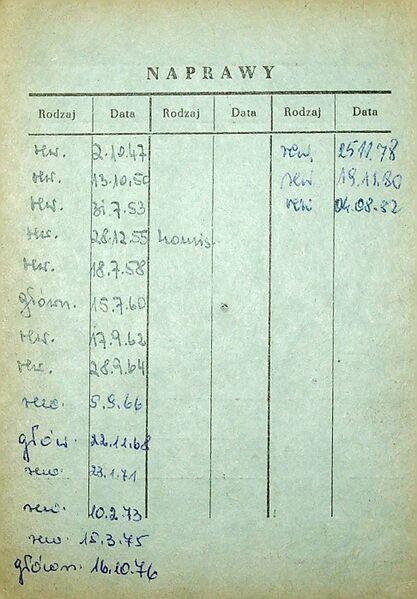 NAPRAWY
Rodzaj Data Rodzaj Data Rodzaj Data
rew. 2.10.47 rew. 25.11.78
rew. 13.10.50 rew 19.11.80
rew. 31.7.53 rew 04.08.82
rew. 28.12.55
rew. 18.7.58
główn. 15.7.60
rew. 17.9.62
rew. 28.9.64
rew. 5.9.66
głów. 22.11.68
rew. 23.1.71
rew. 10.2.73
rew. 15.3.75
główn. 16.10.76